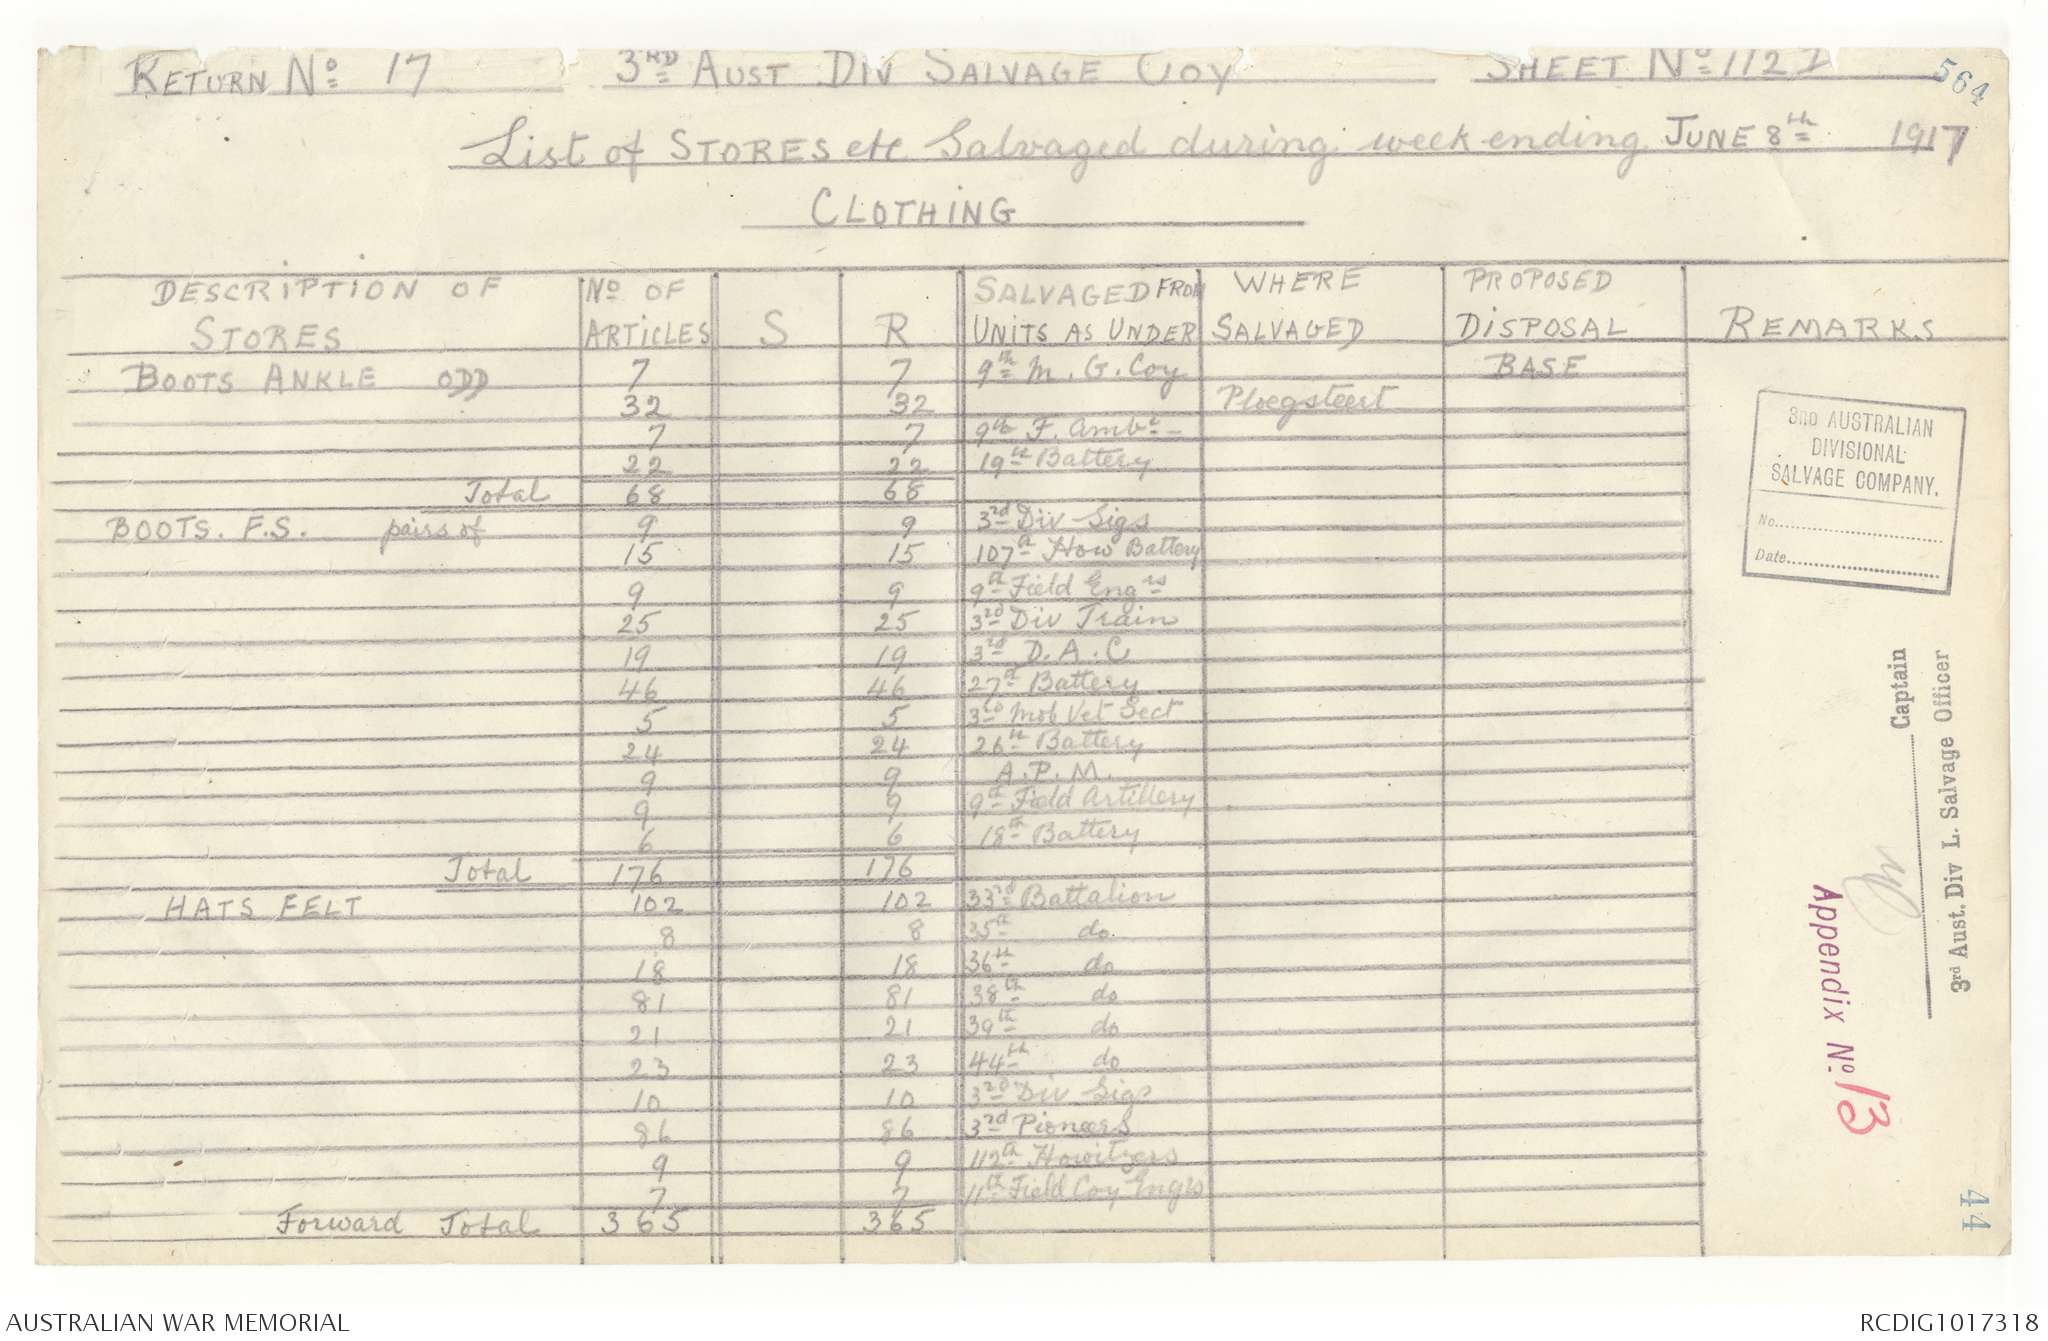 RETURN No 17 3RD AUST DIV SALVAGE COY SHEET No 112
564
List of STORES etc Salvaged during week ending JUNE 8th 1917
CLOTHING
DESCRIPTION OF STORES No OF ARTICLES S R SALVAGED FROM UNITS AS UNDER WHERE SALVAGED PROPOSED DISPOSAL REMARKS
BOOTS ANKLE ODD 7 7 9th M. G. Coy BASE
32 32 Ploegsteert
7 7 9th F. Ambce
22 22 19th Battery
Total 68 68
BOOTS. F.S. pairs of 9 9 3rd Div Sigs
15 15 107th How Battery
9 9 9th Field Engrs
25 25 3rd Div Train
19 19 3rd D.A.C
46 46 27th Battery
5 5 3rd Mob Vet Sect
24 24 26th Battery
9 9 A.P.M.
9 9 9th Field Artillery
6 6 18th Battery
Total 176 176
HATS FELT 102 102 33rd Battalion
8 8 35th do
18 18 36th do
81 81 38th do
21 21 39th do
23 23 44th do
10 10 3rd Div Sigs
86 86 3rd Pioneers
9 9 112th Howitzers
7 7 11th Field Coy Engrs
Forward Total 365 365
3RD AUSTRALIAN
DIVISIONAL
SALVAGE COMPANY.
No.
Date
Captain
3rd Aust. Div L. Salvage Officer
Appendix No. 13
44
AUSTRALIAN WAR MEMORIAL RCDIG1017318